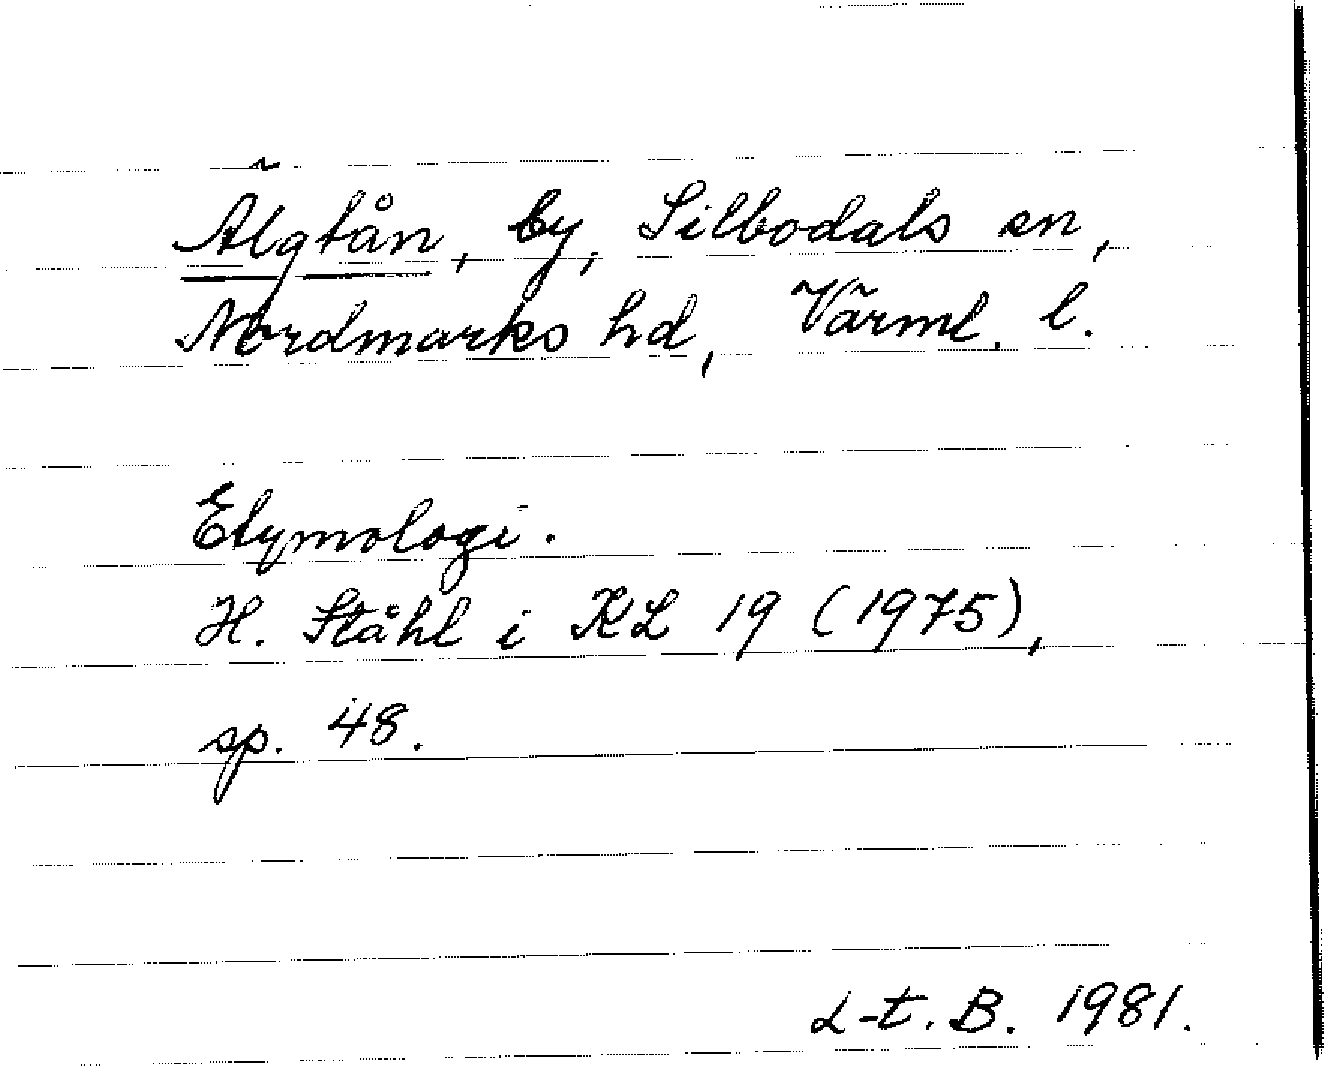 Älgtån, by, Silbodals sn,
Nordmarks hd, Värml. l.
Etymologi.
H. Ståhl i KL 19 (1975),
sp. 48.
L-t. B. 1981.